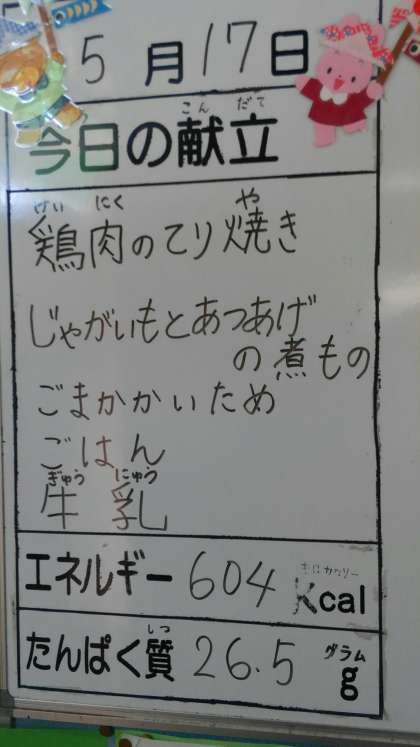 5月17日
こんだて
今日の献立
けいにく や
鶏肉のてり焼き
じゃがいもとあつあげ
の煮もの
ごまかかいため
ごはん
ぎゅうにゅう
牛乳
エネルギー 604 Kcal
しつ グラム
たんぱく質 26.5 g